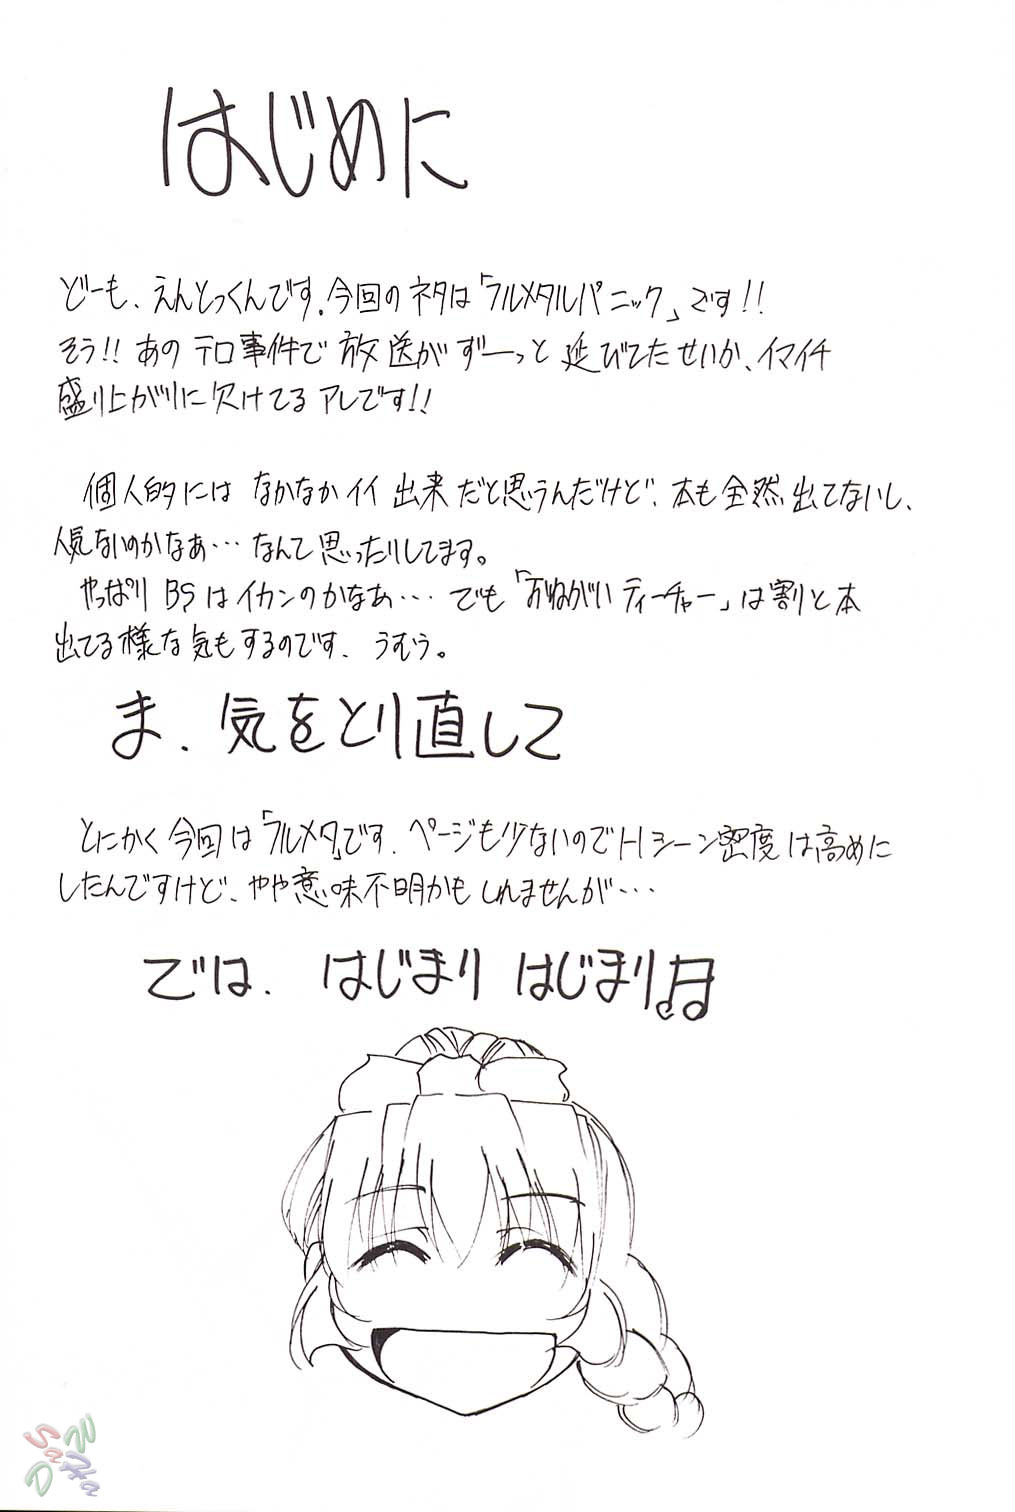 はじめに
どーも、えんとっくんです。今回のネタは「フルメタルパニック」です!!
そう!! あのテロ事件で放送がずーっと延びてたせいか、イマイチ
盛り上がりに欠けてるアレです!!
個人的にはなかなかイイ出来だと思うんだけど、本も全然出てないし、
人気ないのかなあ…なんて思ったりしてます。
やっぱりBSはイカンのかなあ…でも「おねがいティーチャー」は割と本
出てる様な気もするのです、うむう。
ま、気をとり直して
とにかく今回は「フルメタ」です、ページも少ないのでHシーン密度は高めに
したんですけど、やや意味不明かもしれませんが…
では、はじまりはじまり♫